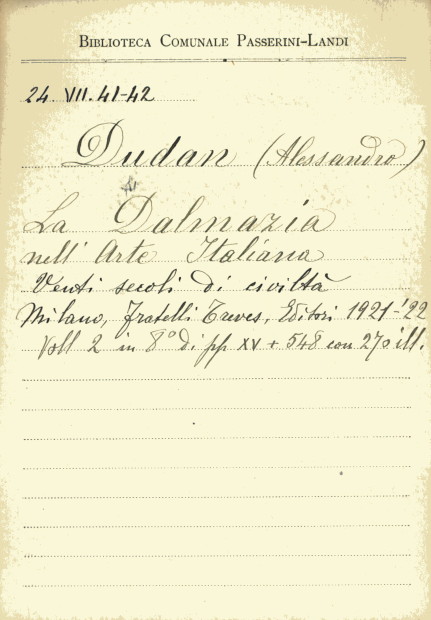 BIBLIOTECA COMUNALE PASSERINI-LANDI
24. VII. 41-42
Dudan (Alessandro)
La Dalmazia
nell'Arte Italiana
Venti secoli di civiltà
Milano, Fratelli Treves, Editori 1921-'22
Voll 2 in 8° di pp XV + 548 con 270 ill.